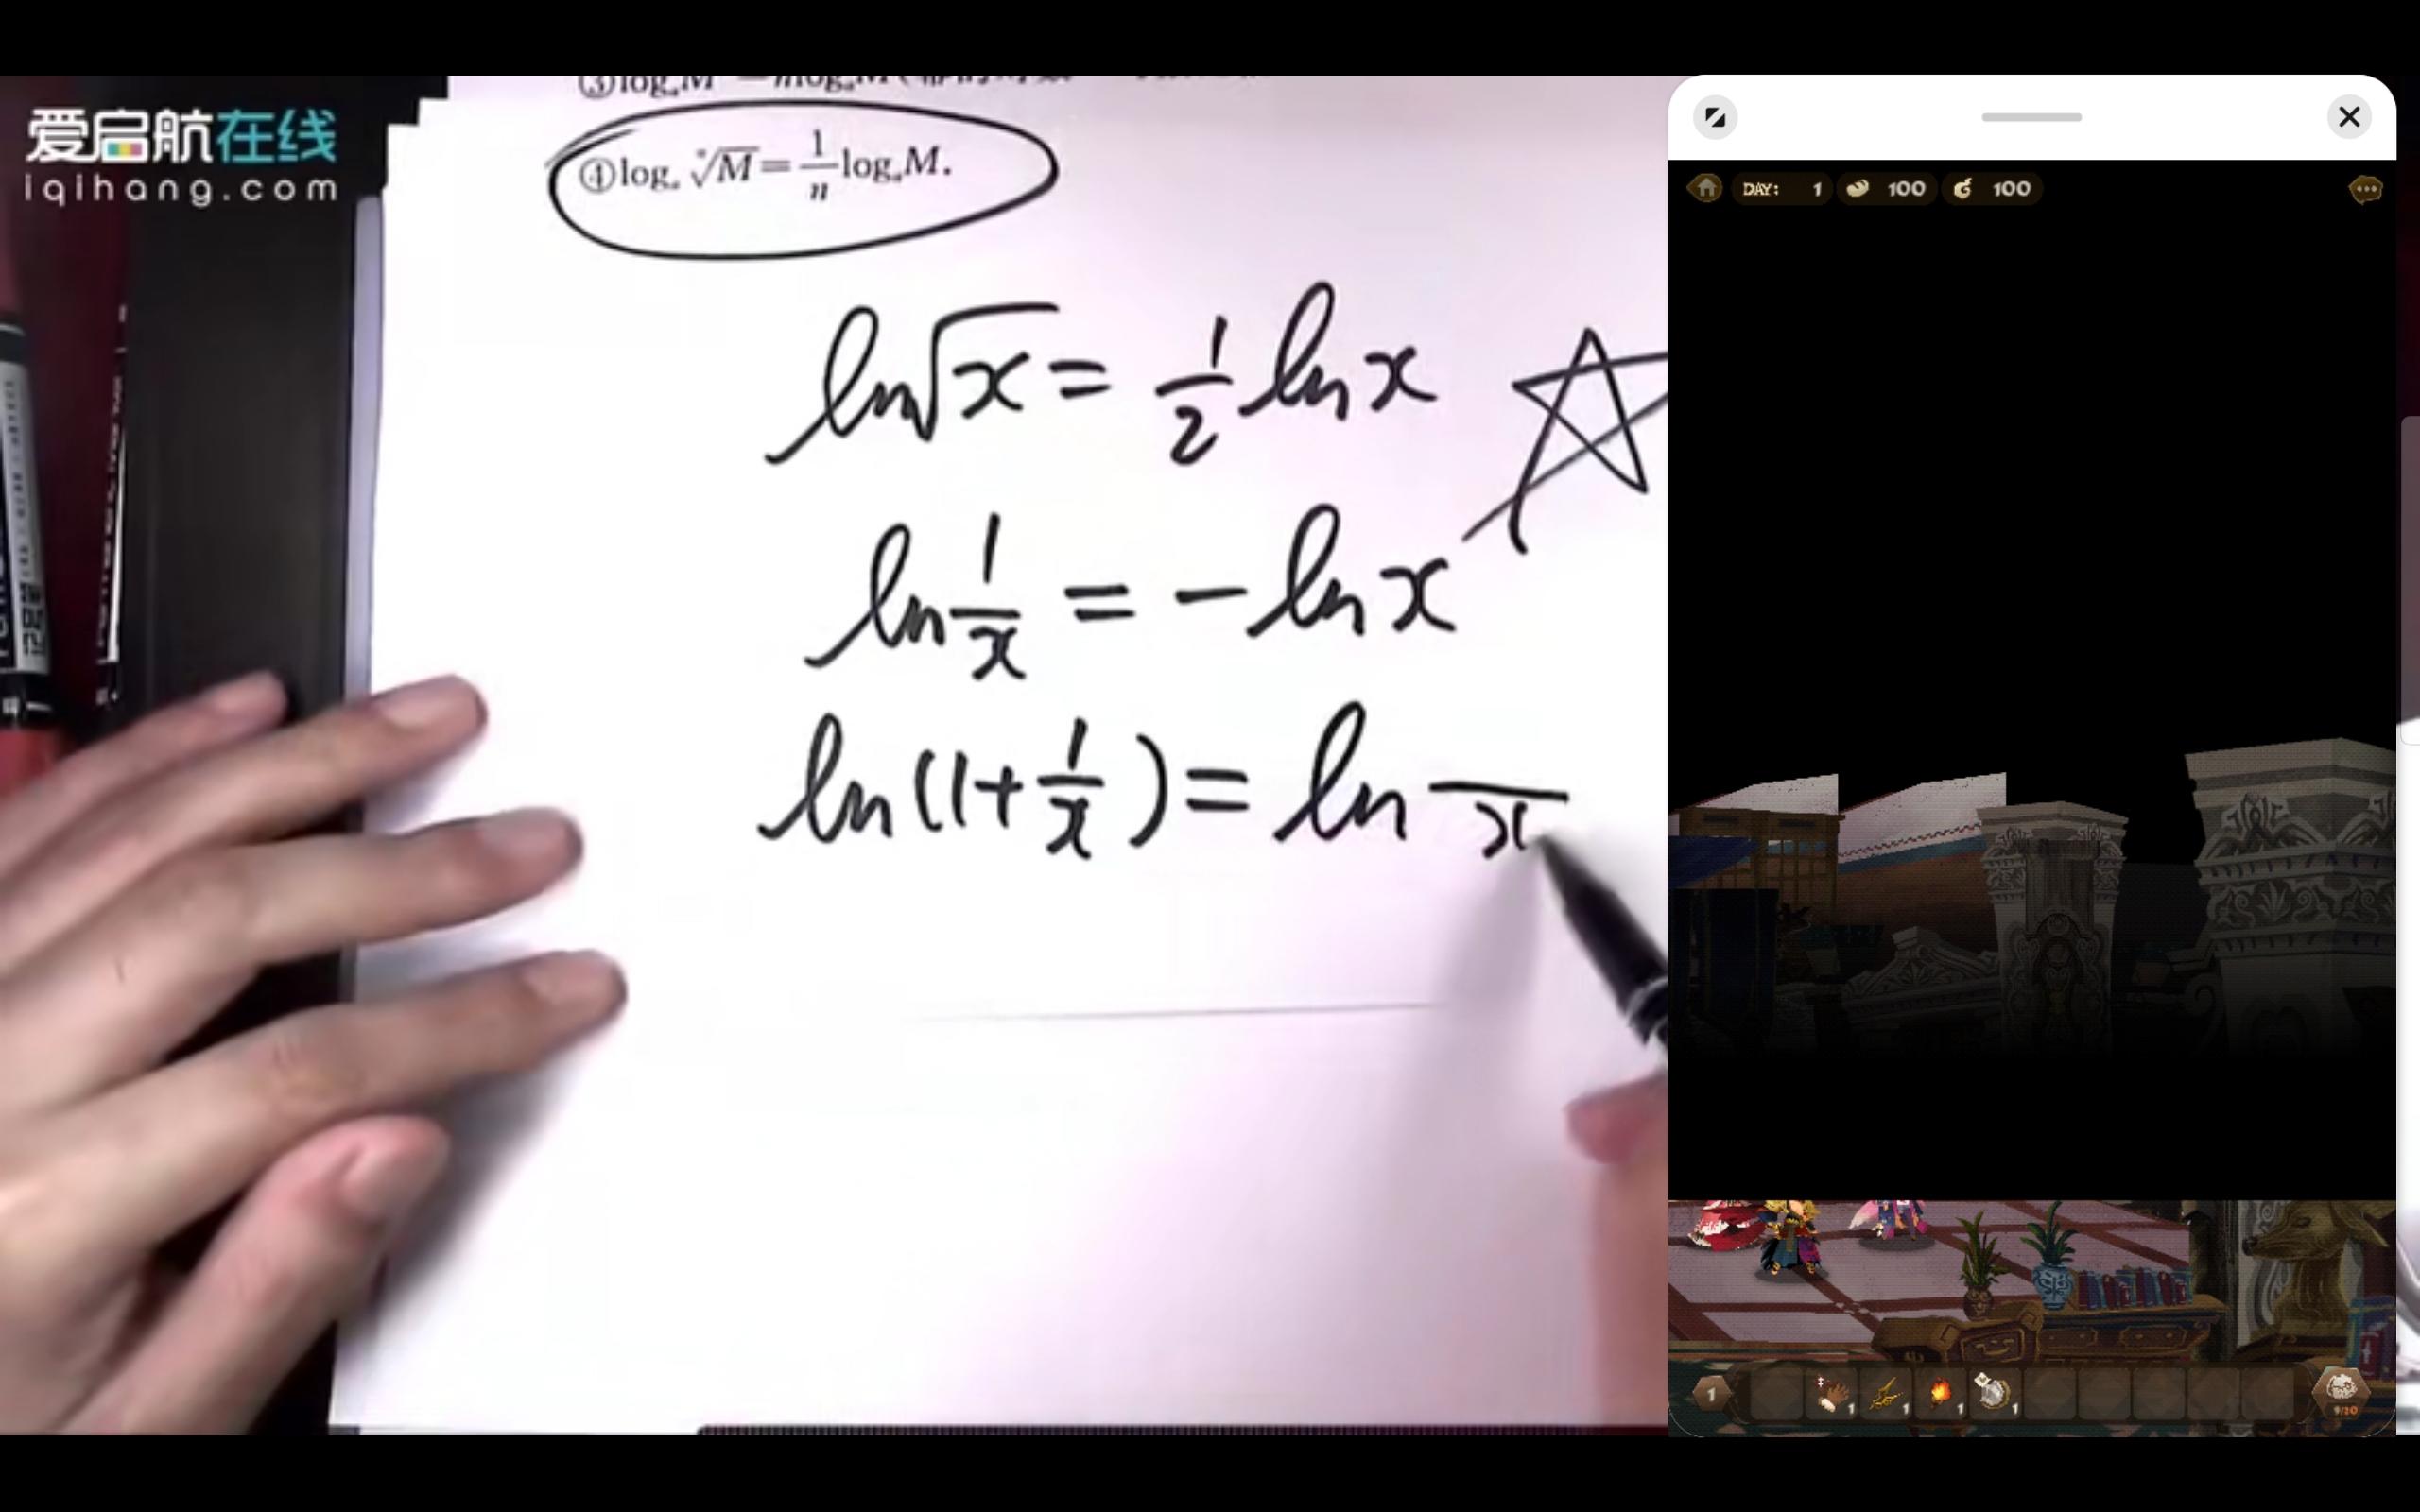 爱启航在线
iqihang.com
④logₐ ⁿ√M = 1/n logₐM.
ln√x = 1/2 ln x
ln 1/x = - ln x
ln(1+1/x) = ln /x
DAY: 1 100 100
1 1 1 1 1
9/20